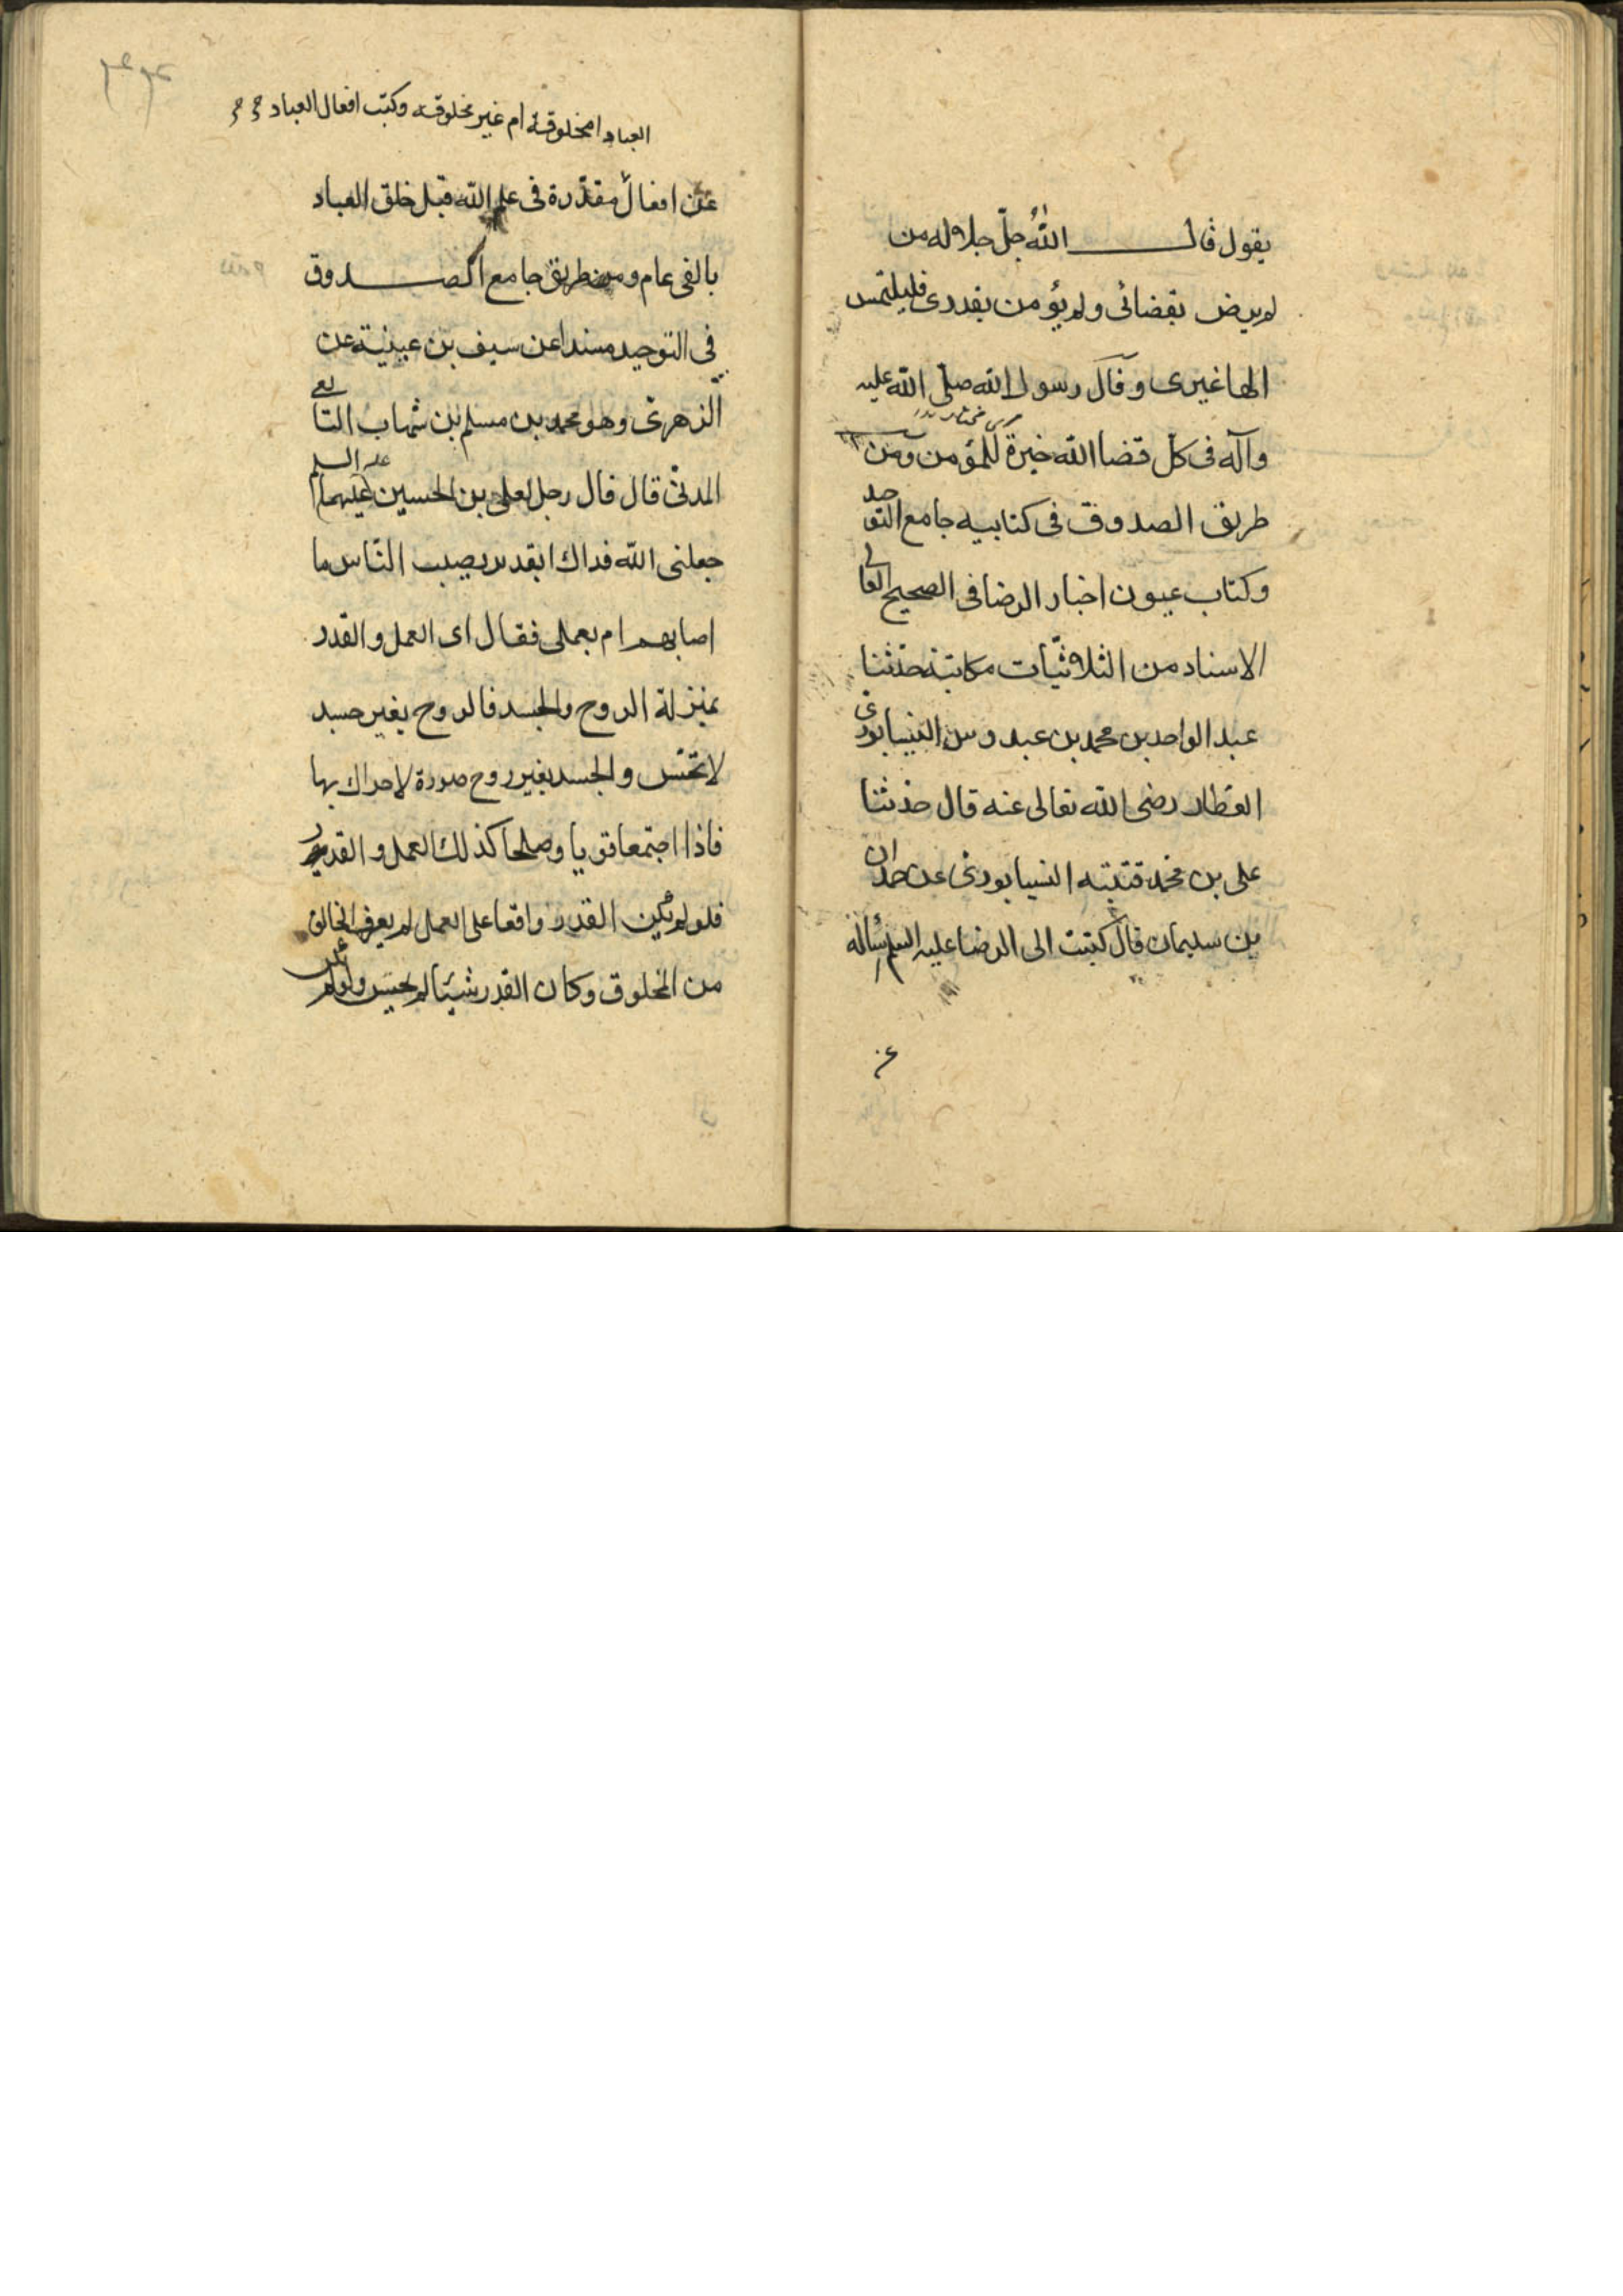 يقول قال الله جل جلاله من
لم يرض بقضائى ولم يؤمن بقدرى فليلتمس
الها غيرى وقال رسول الله صلى الله عليه
وآله فى كل قضا الله خيرة للمؤمن ومن
طريق الصدوق فى كتابيه جامع التوحيد
وكتاب عيون اخبار الرضا فى الصحيح العالى
الاسناد من الثلاثيات مكاتبة حدثنا
عبد الواحد بن محمد بن عبدوس النيسابورى
العطار رضى الله تعالى عنه قال حدثنا
على بن محمد قتيبه النيسابورى عن حمدان
بن سليمان قال كتبت الى الرضا عليه السلم اسأله
عن
العباد امخلوقة ام غير مخلوقه وكتب افعال العباد
عن افعال مقدرة فى علم الله قبل خلق العباد
بالفى عام ومن طريق جامع الصدوق
فى التوحيد مسندا عن سيف بن عيينة عن
الزهرى وهو محمد بن مسلم بن شهاب التابعى
المدنى قال قال رجل لعلى بن الحسين عليهما السلم
جعلنى الله فداك ابقدر يصيب الناس ما
اصابهم ام بعملى فقال اى العمل والقدر
بمنزلة الروح والجسد فالروح بغير جسد
لا تحس والجسد بغير روح صورة لا حراك بها
فاذا اجتمعا قويا وصلحا كذلك العمل والقدر
فلو لم يكن القدر واقعا على العمل لم يعرف الخالق
من المخلوق وكان القدر شيئا لم يحس ولو لم يكن